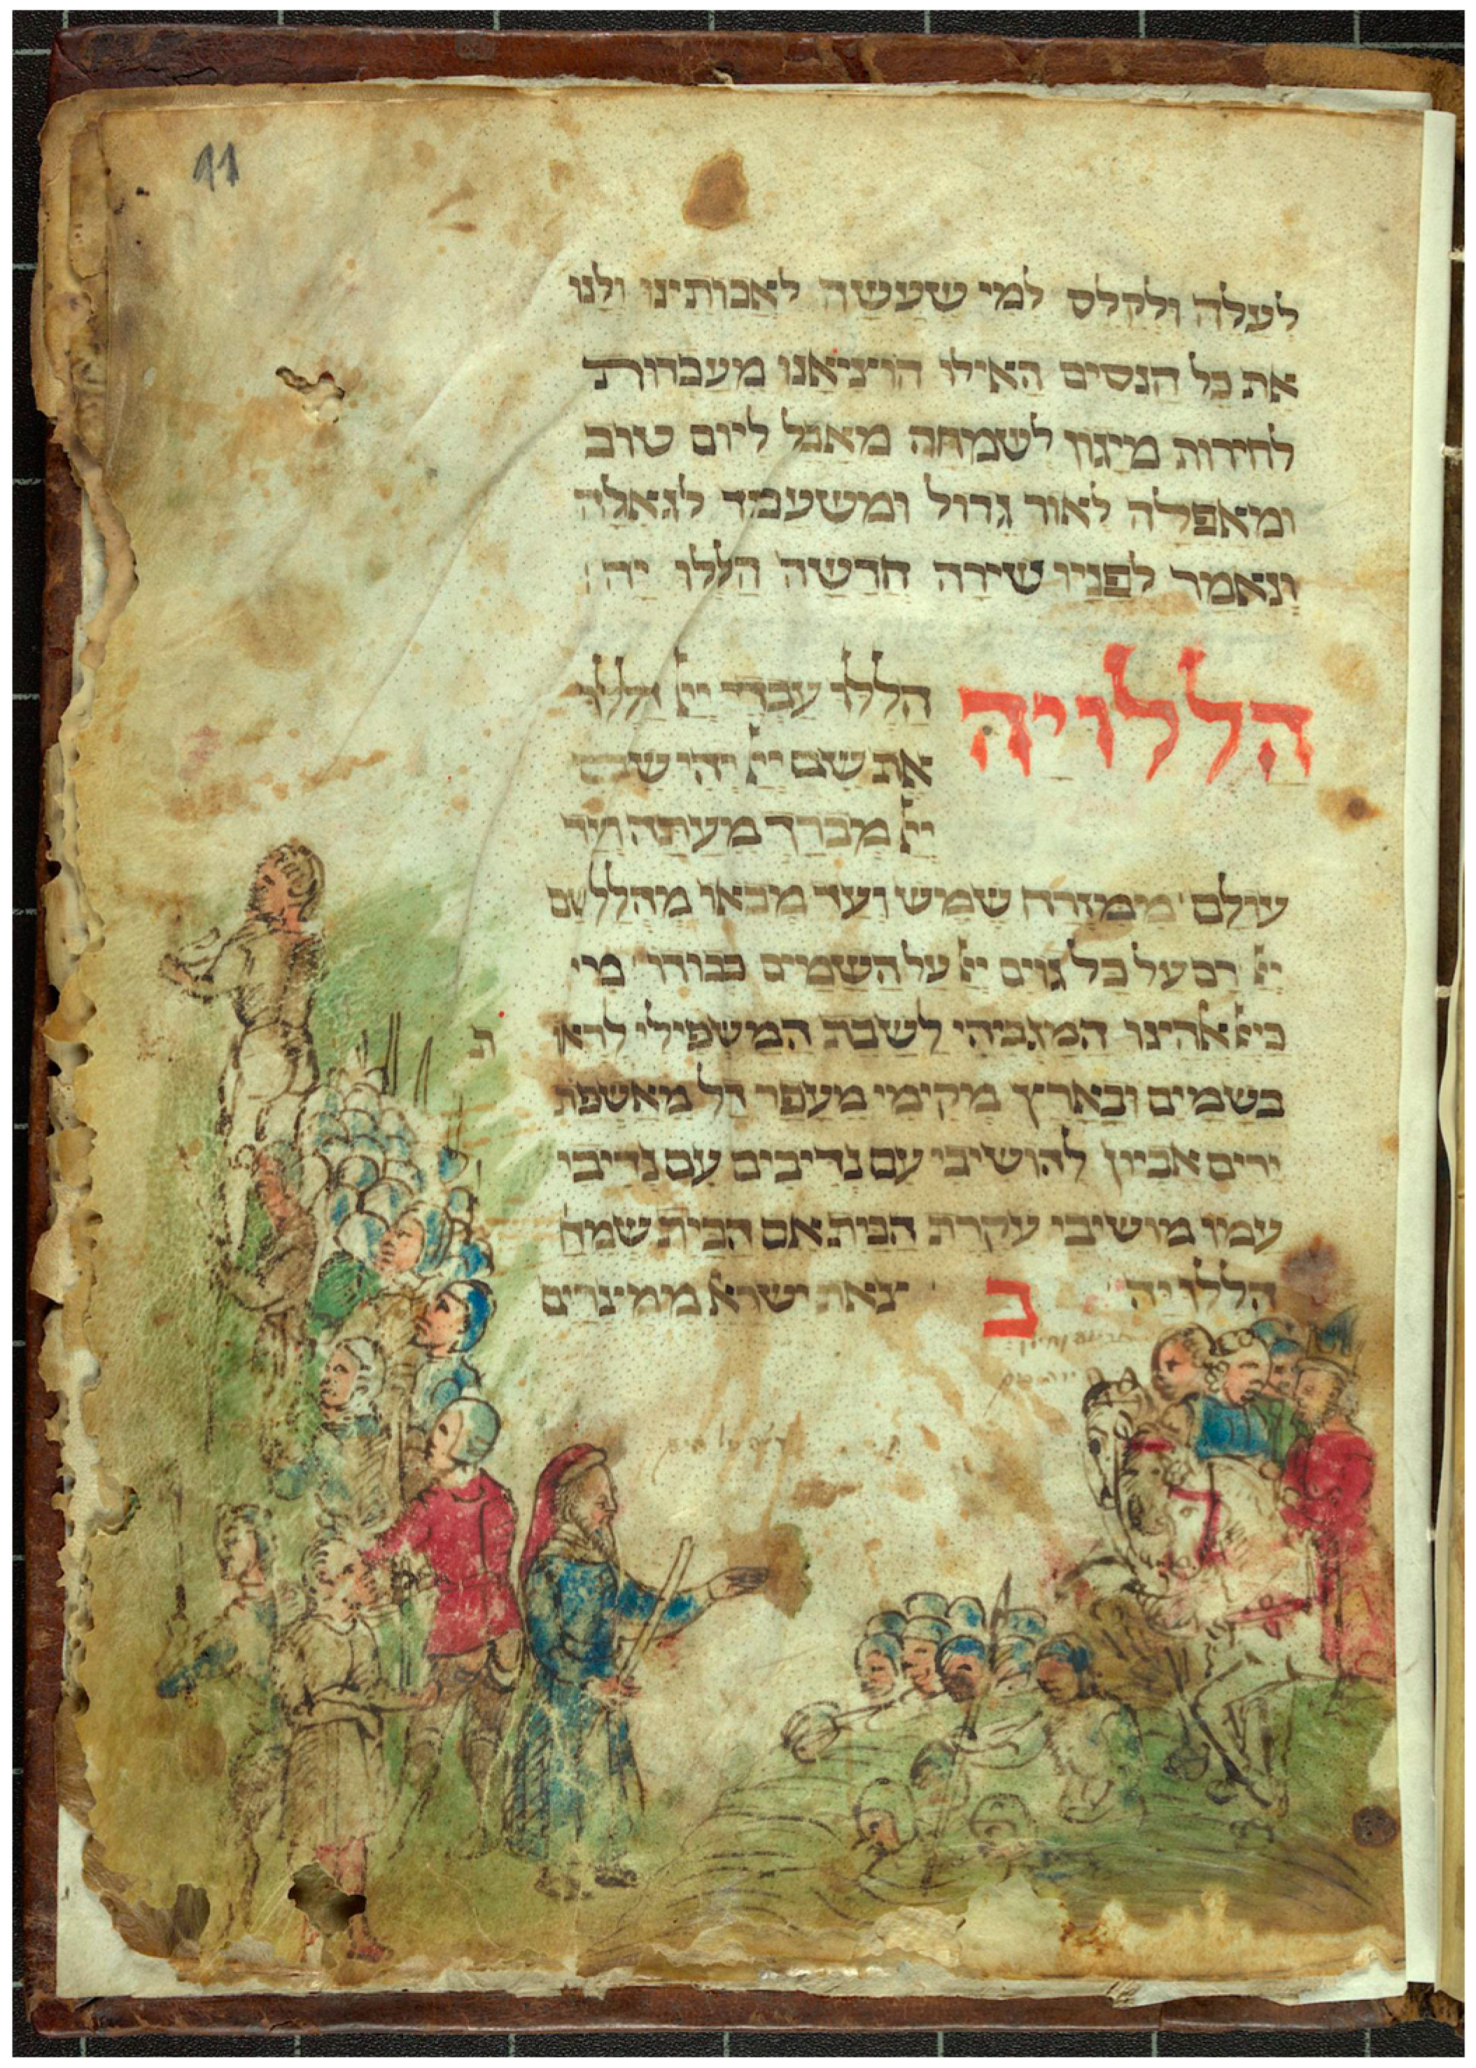 11
לעלה ולקלס למי שעשה לאבותינו ולנו
את כל הנסים האילו הוציאנו מעבדות
לחירות מיגון לשמחה מאבל ליום טוב
ומאפלה לאור גדול ומשעבוד לגאלה
ונאמר לפניו שירה חדשה הללו יה
הללויה
הללו עבדי ייא הללו
את שם ייא יהי שם
ייא מברך מעתה ועד
עולם ממזרח שמש ועד מבאו מהלל שם
ייא רם על כל גוים ייא על השמים כבודו מי
כייא אהינו המגביהי לשבת המשפילי לראו ת
בשמים ובארץ מקימי מעפר דל מאשפת
ירים אביון להושיבי עם נדיבים עם נדיבי
עמו מושיבי עקרת הבית אם הבנים שמחה
הללו יה ב צאת ישרא ממצרים